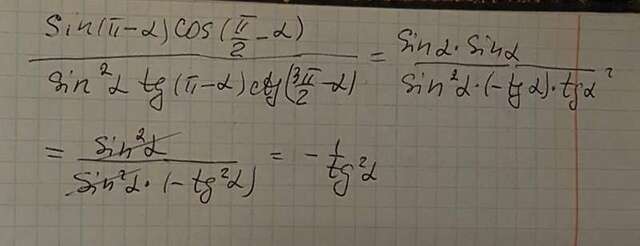 sin(π-α) cos(π/2-α) / sin²α tg(π-α) ctg(3π/2-α) = sinα·sinα / sin²α·(-tgα)·tgα =
= sin²α / sin²α·(-tg²α) = - 1/tg²α